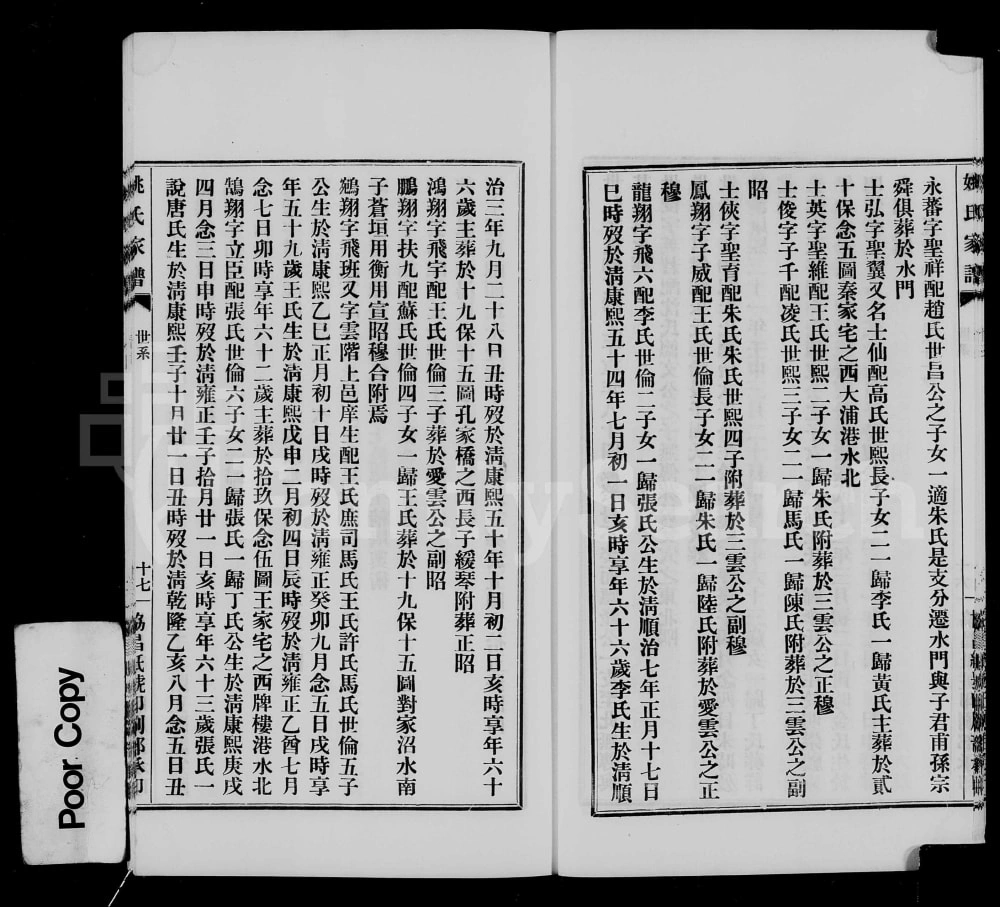 永蕃字聖祥配趙氏世昌公之子女一適朱氏是支分遷水門與子君甫孫宗
舜俱葬於水門
士弘字聖翼又名士仙配高氏世熙長子女二一歸李氏一歸黃氏主葬於貳
十保念五圖秦家宅之西大浦港水北
士英字聖維配王氏世熙二子女一歸朱氏附葬於三雲公之正穆
士俊字子千配凌氏世熙三子女二一歸馬氏一歸陳氏附葬於三雲公之副
昭
士俠字聖育配朱氏朱氏世熙四子附葬於三雲公之副穆
鳳翔字子威配王氏世倫長子女二一歸朱氏一歸陸氏附葬於愛雲公之正
穆
龍翔字飛六配李氏世倫二子女一歸張氏公生於淸順治七年正月十七日
巳時歿於淸康熙五十四年七月初一日亥時享年六十六歲李氏生於淸順
姚氏家譜
世系
十七
治三年九月二十八日丑時歿於淸康熙五十年十月初二日亥時享年六十
六歲主葬於十九保十五圖孔家橋之西長子綏琴附葬正昭
鴻翔字飛宇配王氏世倫三子葬於愛雲公之副昭
鵬翔字扶九配蘇氏世倫四子女一歸王氏葬於十九保十五圖對家沼水南
子蒼垣用衡用宣昭穆合附焉
鵷翔字飛班又字雲階上邑庠生配王氏庶司馬氏王氏許氏馬氏世倫五子
公生於淸康熙乙巳正月初十日戌時歿於淸雍正癸卯九月念五日戌時享
年五十九歲王氏生於淸康熙戊申二月初四日辰時歿於淸雍正乙酉七月
念七日卯時享年六十二歲主葬於拾玖保念伍圖王家宅之西牌樓港水北
鵠翔字立臣配張氏世倫六子女二一歸張氏一歸丁氏公生於淸康熙庚戌
四月念三日申時歿於淸雍正壬子拾月廿一日亥時享年六十三歲張氏一
說唐氏生於淸康熙壬子十月廿一日丑時歿於淸乾隆乙亥八月念五日丑
姚氏家譜
Poor Copy